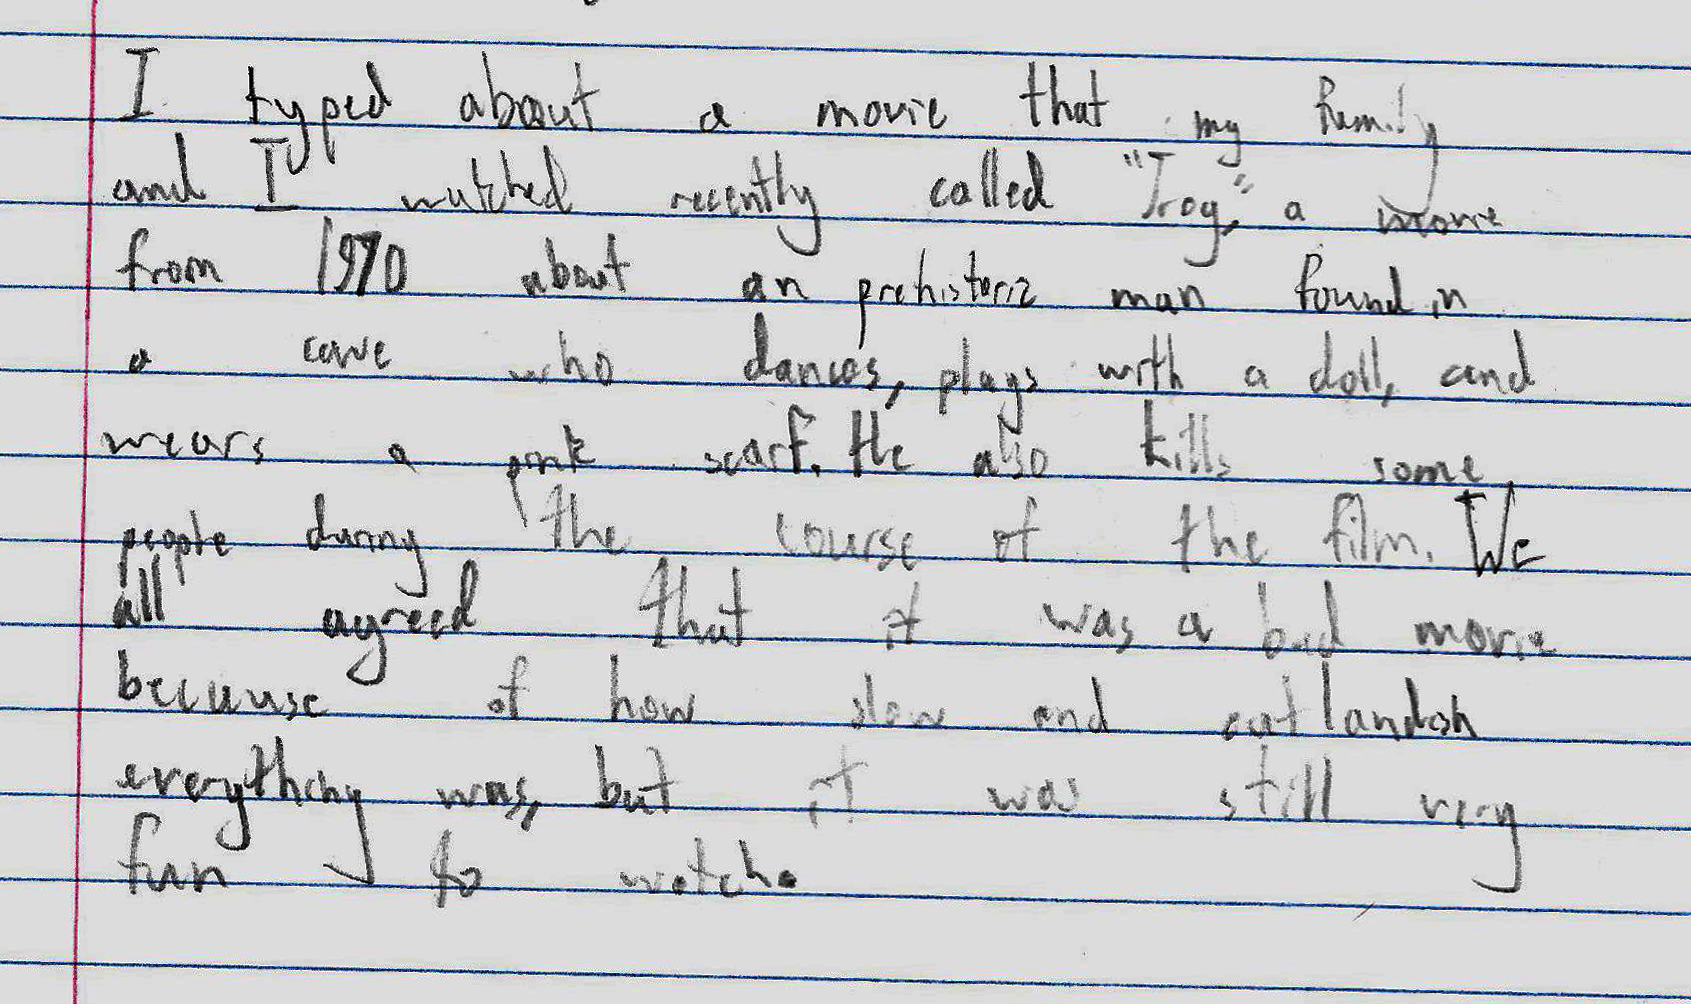 I typed about a movie that my family
and I watched recently called "Trog," a movie
from 1970 about an prehistoric man found in
a cave who dances, plays with a doll, and
wears a pink scarf. He also kills some
people during the course of the film. We
all agreed that it was a bad movie
because of how slow and outlandish
everything was, but it was still very
fun to watch.